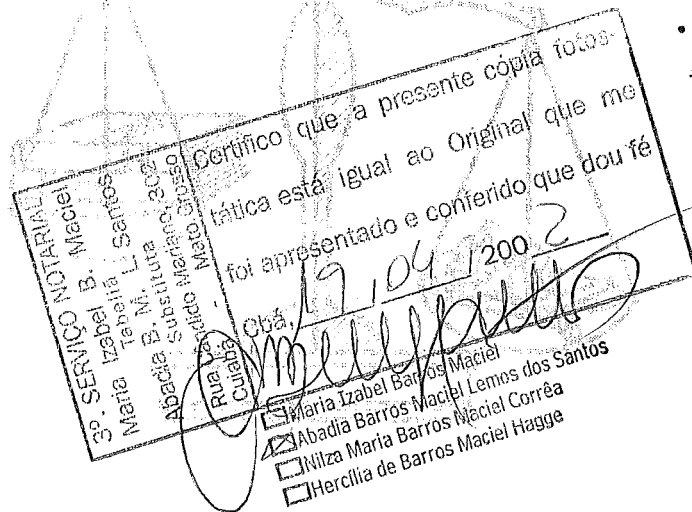 3º. SERVIÇO NOTARIAL
Maria Izabel B. Maciel
Tabeliã
Abadia B. M. L. Santos
Substituta
Rua Candido Mariano, 302
Cuiabá - Mato Grosso
Certifico que a presente cópia fotos-
tática está igual ao Original que me
foi apresentado e conferido que dou fé
Cbá, 19 / 04 / 200 2
Maria Izabel Barros Maciel
Abadia Barros Maciel Lemos dos Santos
Nilza Maria Barros Maciel Corrêa
Hercília de Barros Maciel Hagge